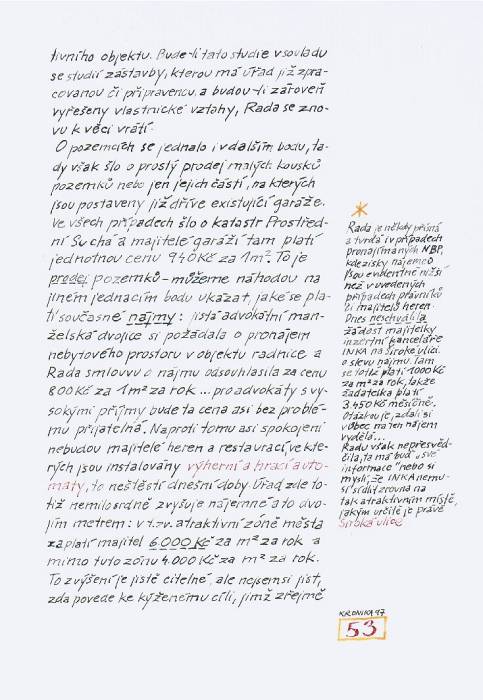 tivního objektu. Bude-li tato studie v souladu
se studií zástavby, kterou má úřad již zpra-
covanou či připravenou a budou-li zároveň
vyřešeny vlastnické vztahy, Rada se zno-
vu k věci vrátí.
O pozemcích se jednalo i v dalším bodu, ta-
dy však šlo o prostý prodej malých kousků
pozemků nebo jen jejich částí, na kterých
jsou postaveny již dříve existující garáže.
Ve všech případech šlo o katastr Prostřed-
ní Suchá a majitelé garáží tam platí
jednotnou cenu 940 Kč za 1m². To je
prodej pozemků – můžeme náhodou na
jiném jednacím bodu ukázat, jaké se pla-
tí současné nájmy: jistá advokátní man-
želská dvojice si požádala o pronájem
nebytového prostoru v objektu radnice a
Rada smlouvu o nájmu odsouhlasila za cenu
800 Kč za 1m² za rok ... pro advokáty s vy-
sokými příjmy bude ta cena asi bez problé-
mu přijatelná. Naproti tomu asi spokojeni
nebudou majitelé heren a restaurací, ve kte-
rých jsou instalovány výherní a hrací auto-
maty, to neštěstí dnešní doby. Úřad zde to-
tiž nemilosrdně zvyšuje nájemné a to dvo-
jím metrem: v t.zv. atraktivní zóně města
zaplatí majitel 6.000 Kč za m² za rok a
mimo tuto zónu 4.000 Kč za m² za rok.
To zvýšení je jistě citelné, ale nejsem si jist,
zda povede ke kýženému cíli, jímž zřejmě
Rada je někdy přísná
a tvrdá i v případech
pronajímaných NBP,
kde zisky nájemců
jsou evidentně nižší
než v uvedených
případech právníků
či majitelů heren
Dnes neschválila
žádost majitelky
inzertní kanceláře
INKA na Široké ulici
o slevu nájmu. Tam
se totiž platí 1000 Kč
za m² za rok, takže
žadatelka platí
3.450 Kč měsíčně.
Otázkou je, zda li si
vůbec na ten nájem
vydělá...
Radu však nepřesvěd-
čila, ta má buď „své
informace" nebo si
myslí, že INKA nemu-
sí sídlit zrovna na
tak atraktivním místě,
jakým určitě je právě
Široká ulice
KRONIKA 97
53